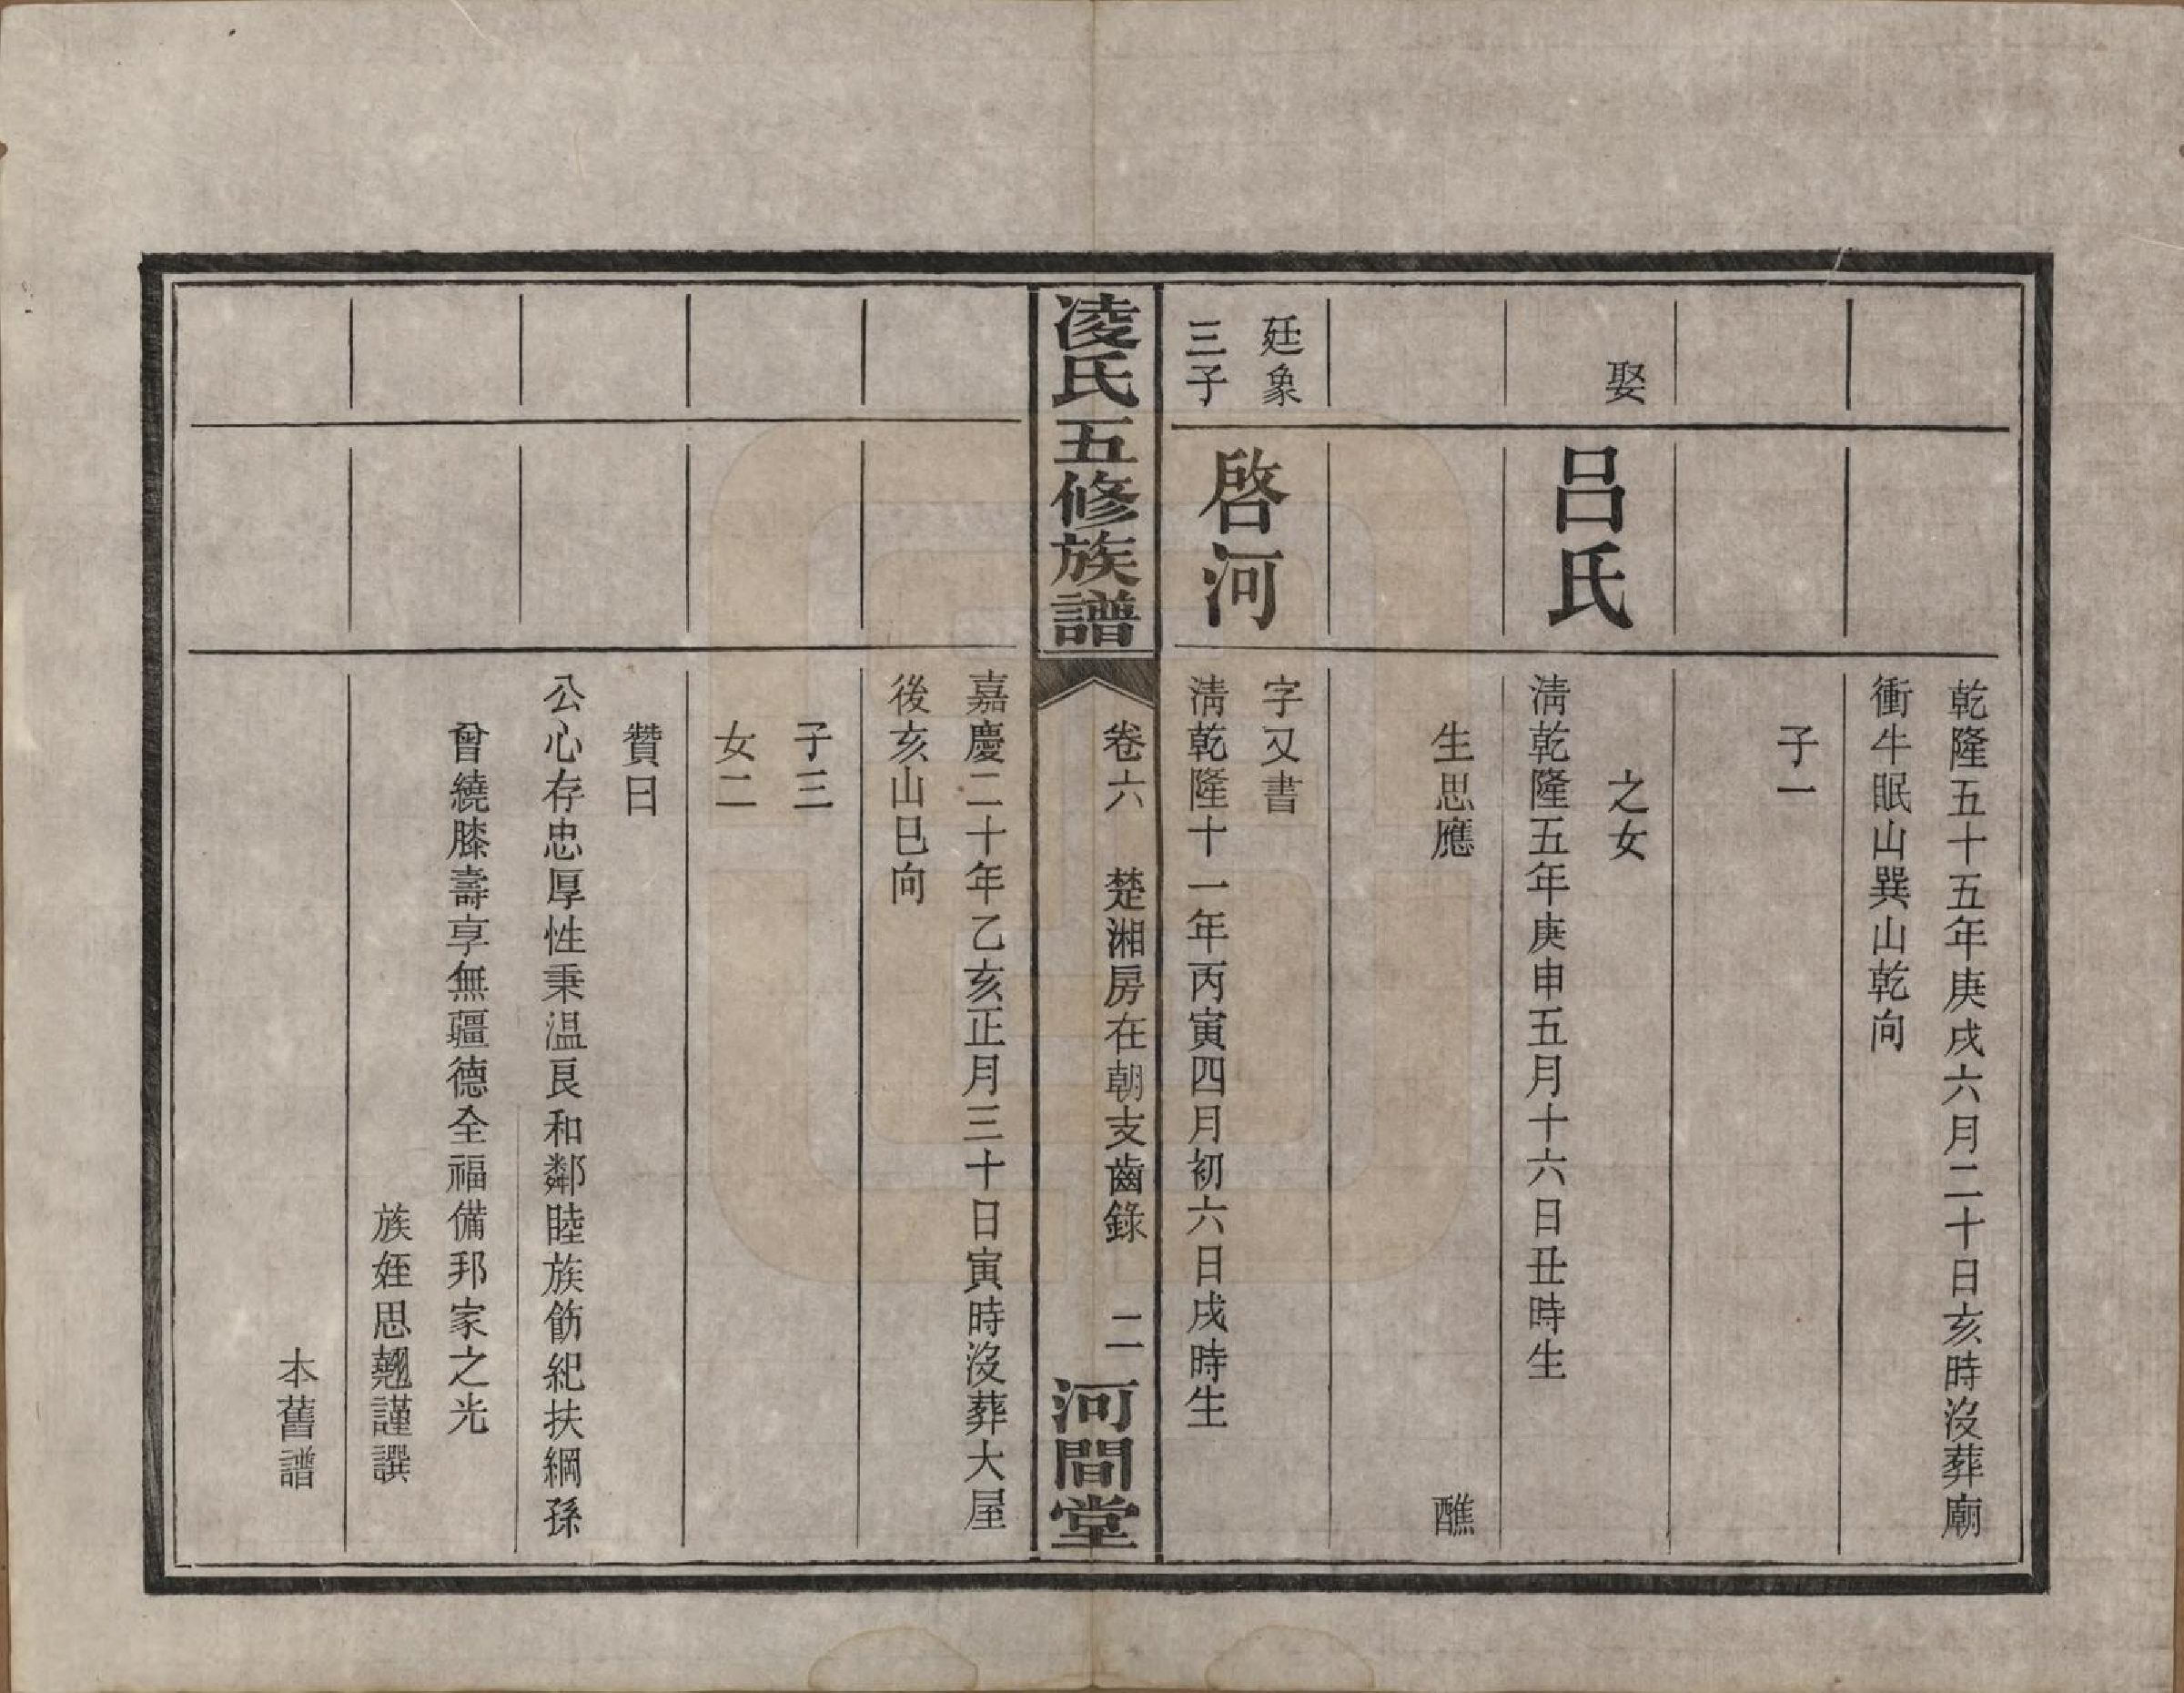 乾隆五十五年庚戌六月二十日亥時沒葬廟
衝牛眠山巽山乾向
子一
娶
呂氏
之女
淸乾隆五年庚申五月十六日丑時生
生思應
醮
廷象
三子
啓河
字又書
淸乾隆十一年丙寅四月初六日戌時生
凌氏五修族譜
卷六 楚湘房在朝支齒錄 二
河間堂
嘉慶二十年乙亥正月三十日寅時沒葬大屋
後亥山巳向
子三
女二
贊曰
公心存忠厚性秉温良和鄰睦族飭紀扶綱孫
曾繞膝壽享無疆德全福備邦家之光
族姪思翹謹譔
本舊譜